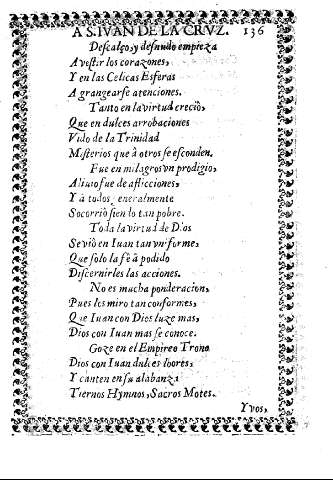 A S. IVAN DE LA CRVZ. 136
Descalço, y desnudo empieza
A vestir los corazones,
Y en las Celicas Esferas
A grangearse atenciones.
Tanto en la virtud creciò,
Que en dulces arrobaciones
Vido de la Trinidad
Misterios que à otros se esconden.
Fue en milagros vn prodigio,
Aliuio fue de aflicciones,
Y à todos generalmente
Socorriò sien lo tan pobre.
Toda la virtud de Dios
Se viò en Iuan tan vniforme,
Que solo la fè à podido
Discernirles las acciones.
No es mucha ponderacion,
Pues les miro tan conformes,
Que Iuan con Dios luze mas,
Dios con Iuan mas se conoce.
Goze en el Empireo Trono
Dios con Iuan dulces loores,
Y canten en su alabanza
Tiernos Hymnos, Sacros Motes.
Yvos,